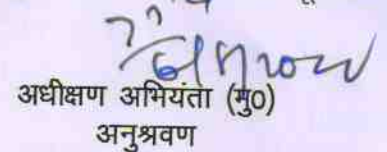 अधीक्षण अभियंता (मु0)
अनुश्रवण